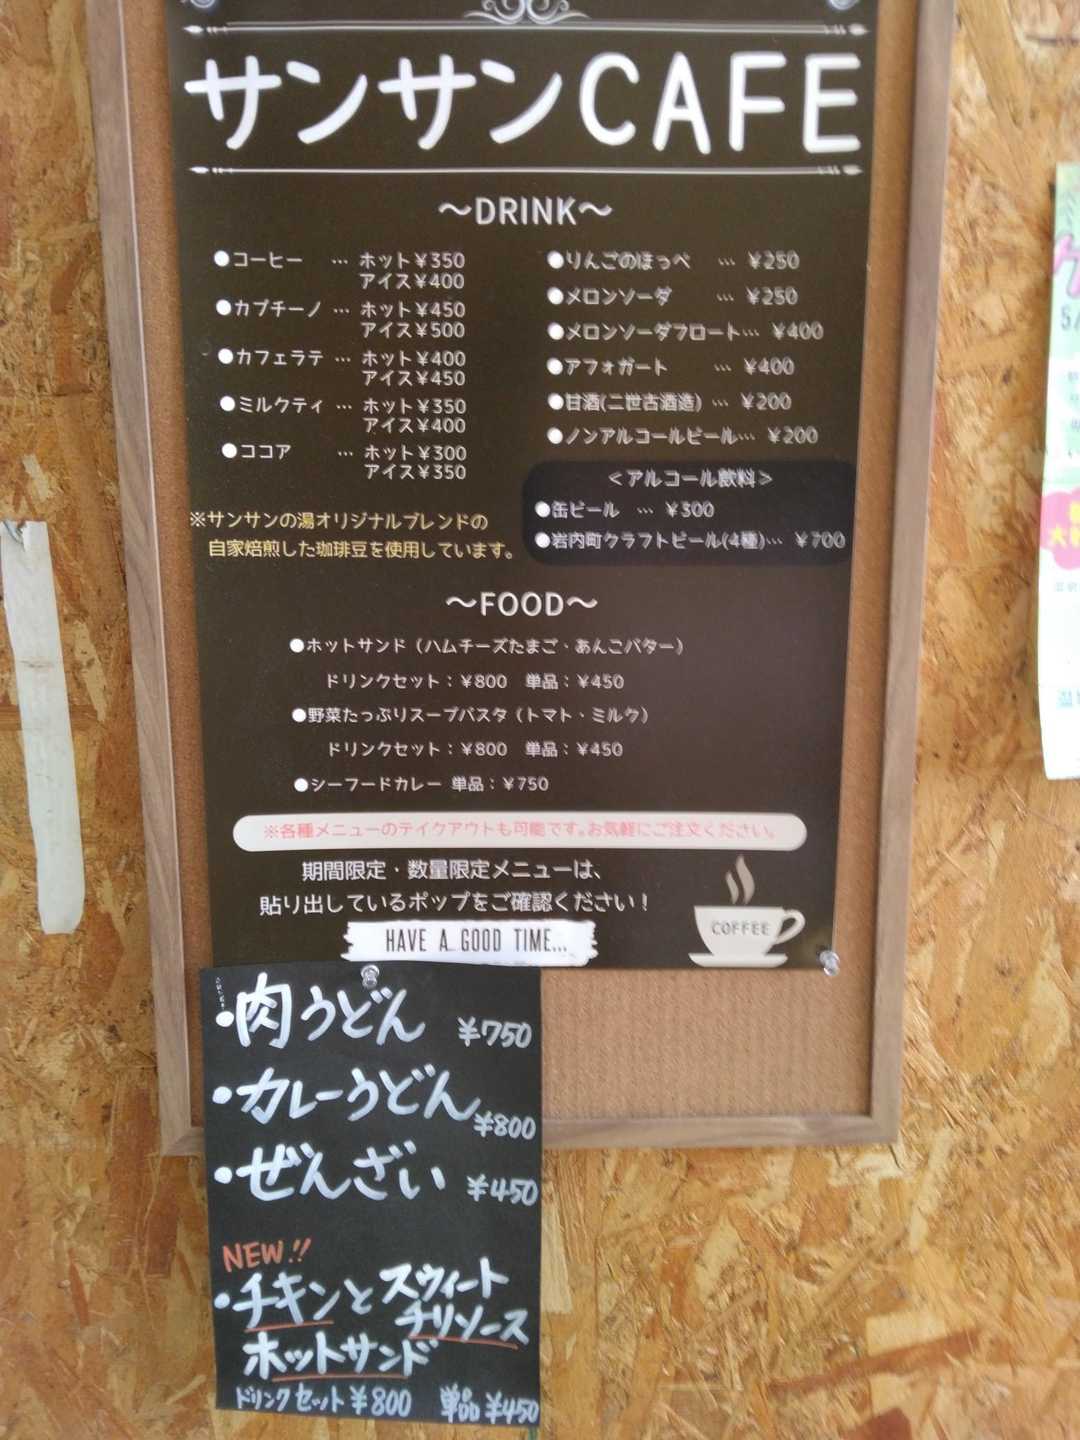 サンサンCAFE
～DRINK～
●コーヒー … ホット¥350
アイス¥400
●カプチーノ … ホット¥450
アイス¥500
●カフェラテ … ホット¥400
アイス¥450
●ミルクティ … ホット¥350
アイス¥400
●ココア … ホット¥300
アイス¥350
※サンサンの湯オリジナルブレンドの
自家焙煎した珈琲豆を使用しています。
●りんごのほっぺ … ¥250
●メロンソーダ … ¥250
●メロンソーダフロート… ¥400
●アフォガート … ¥400
●甘酒(二世古酒造) … ¥200
●ノンアルコールビール… ¥200
＜アルコール飲料＞
●缶ビール … ¥300
●岩内町クラフトビール(4種)… ¥700
～FOOD～
●ホットサンド（ハムチーズたまご・あんこバター）
ドリンクセット：¥800 単品：¥450
●野菜たっぷりスープパスタ（トマト・ミルク）
ドリンクセット：¥800 単品：¥450
●シーフードカレー 単品：¥750
※各種メニューのテイクアウトも可能です。お気軽にご注文ください。
期間限定・数量限定メニューは、
貼り出しているポップをご確認ください！
HAVE A GOOD TIME...
COFFEE
・肉うどん ¥750
・カレーうどん ¥800
・ぜんざい ¥450
NEW!!
・チキンとスウィート
チリソース
ホットサンド
ドリンクセット¥800 単品¥450